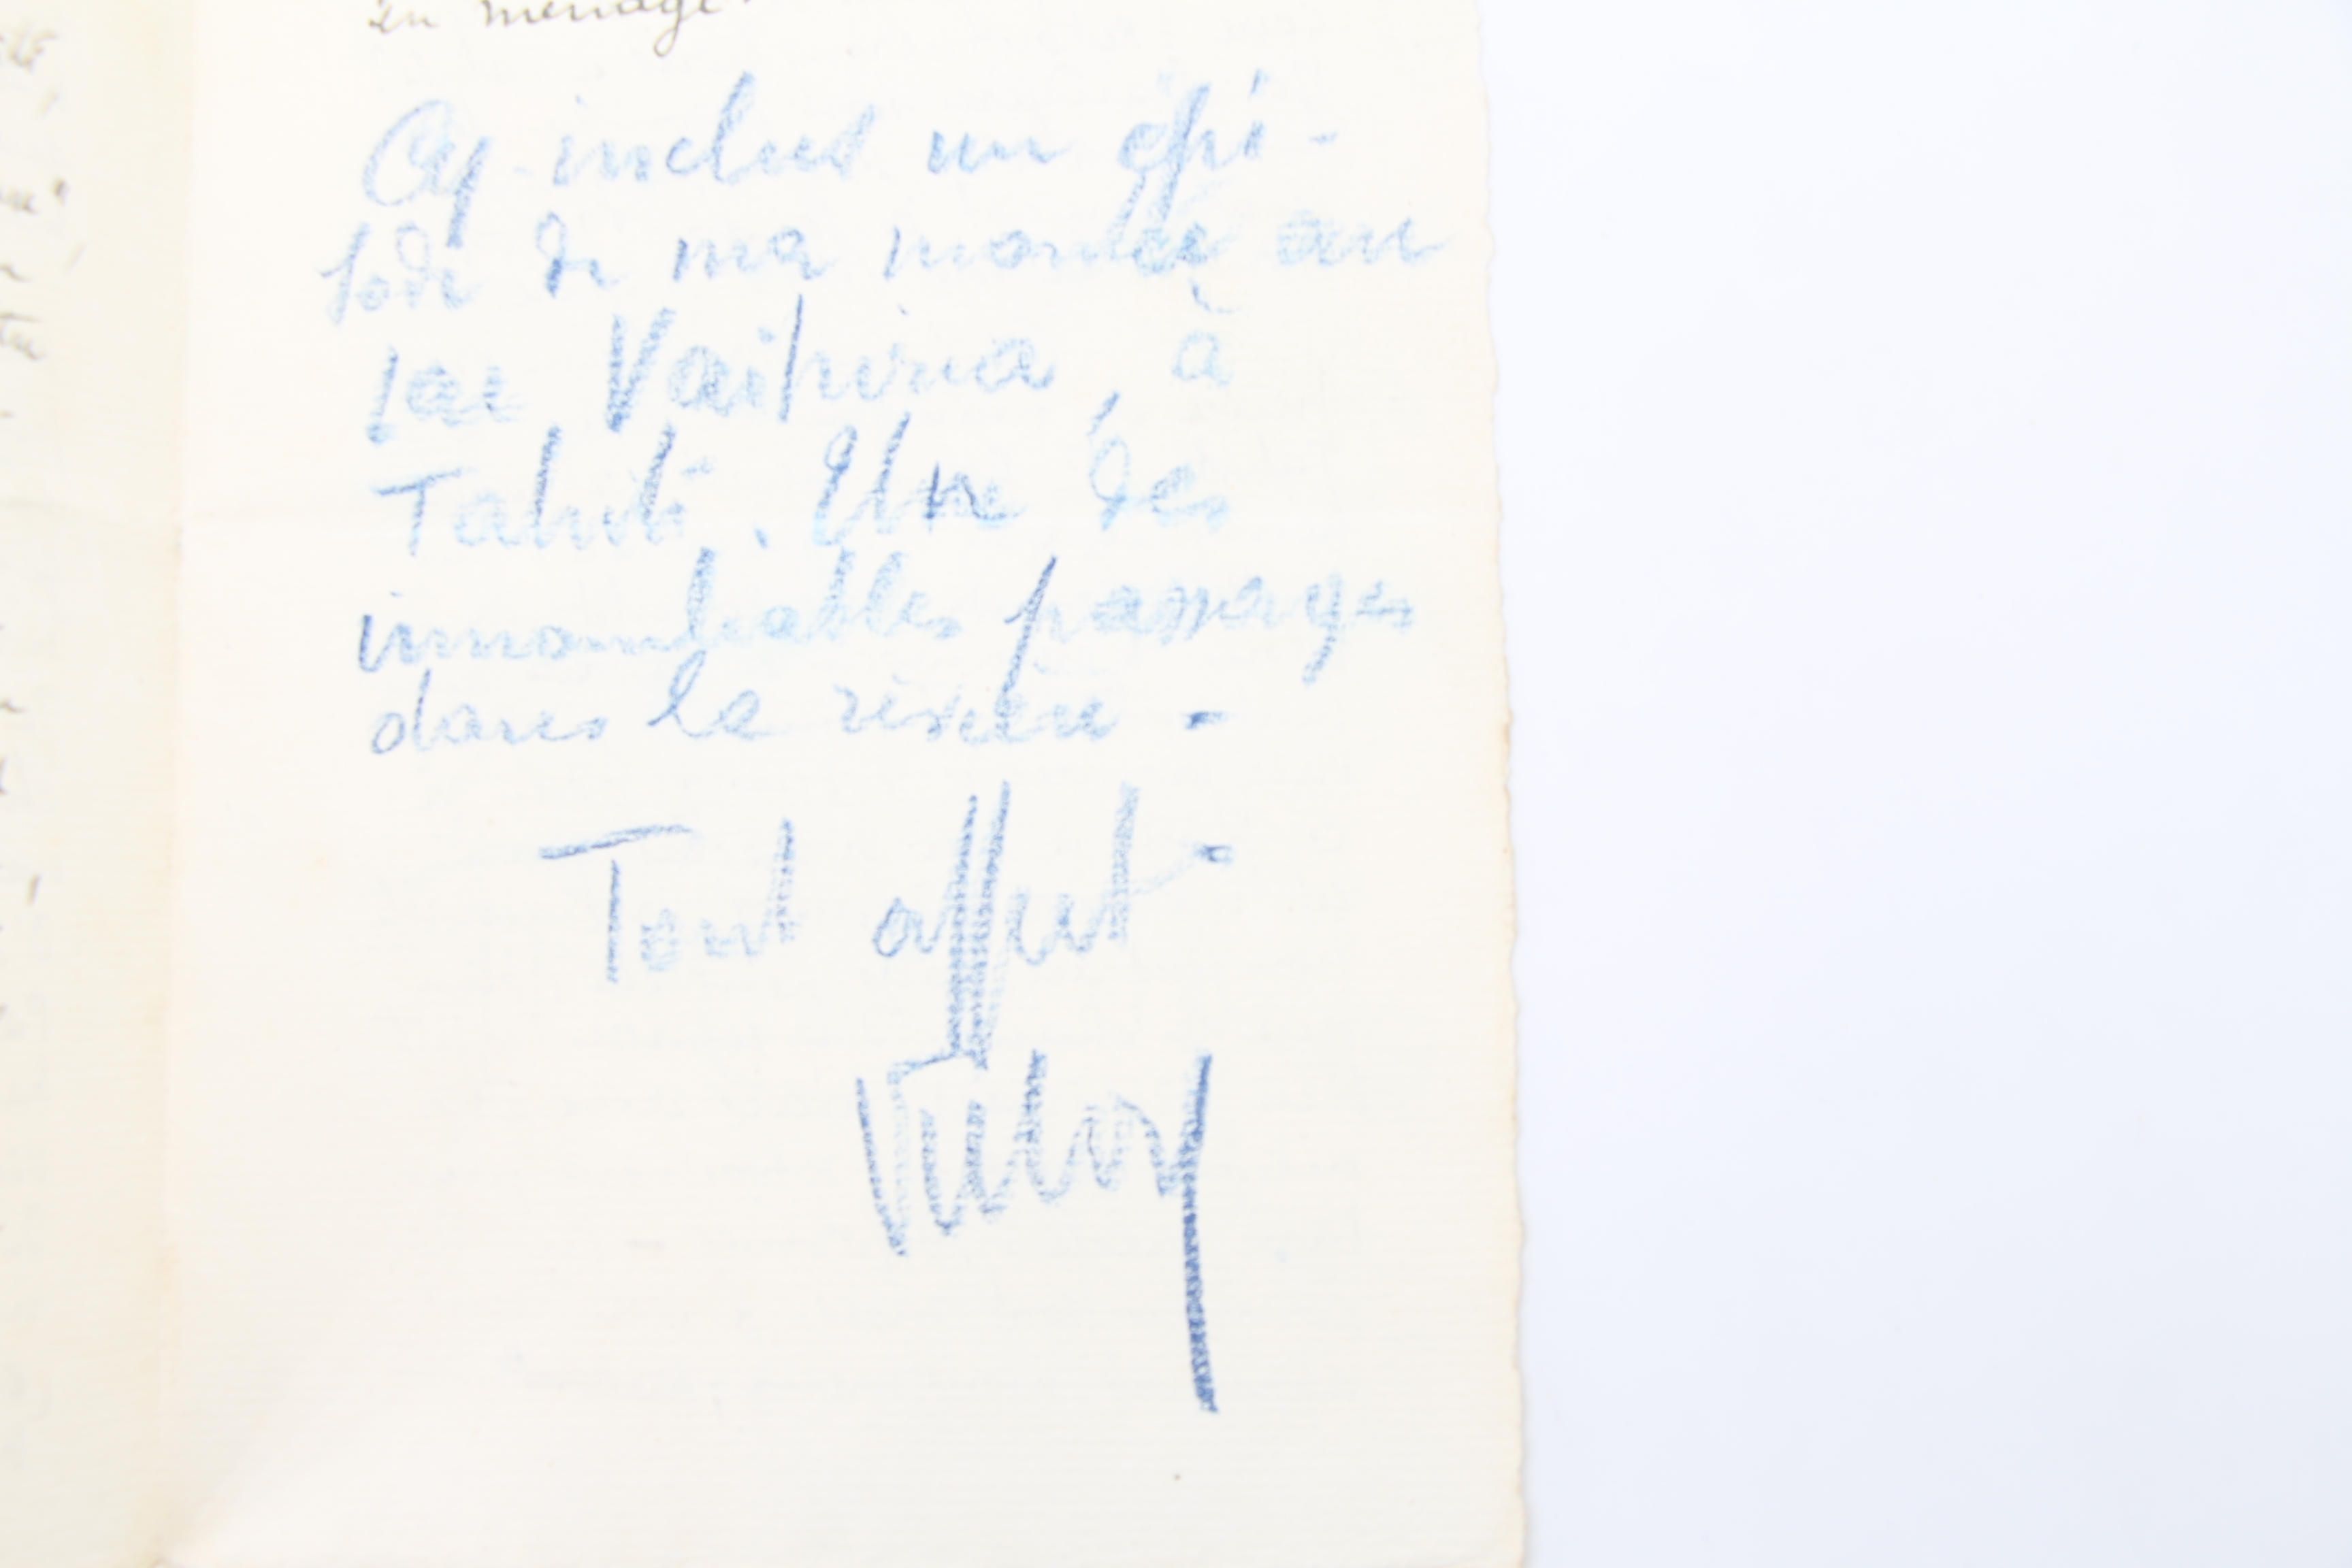 en ménage.
Cy-inclus un épi-
sode de ma montée au
lac Vaihiria, à
Tahiti. Un des
innombrables passages
dans la rivière -
Tout affect -